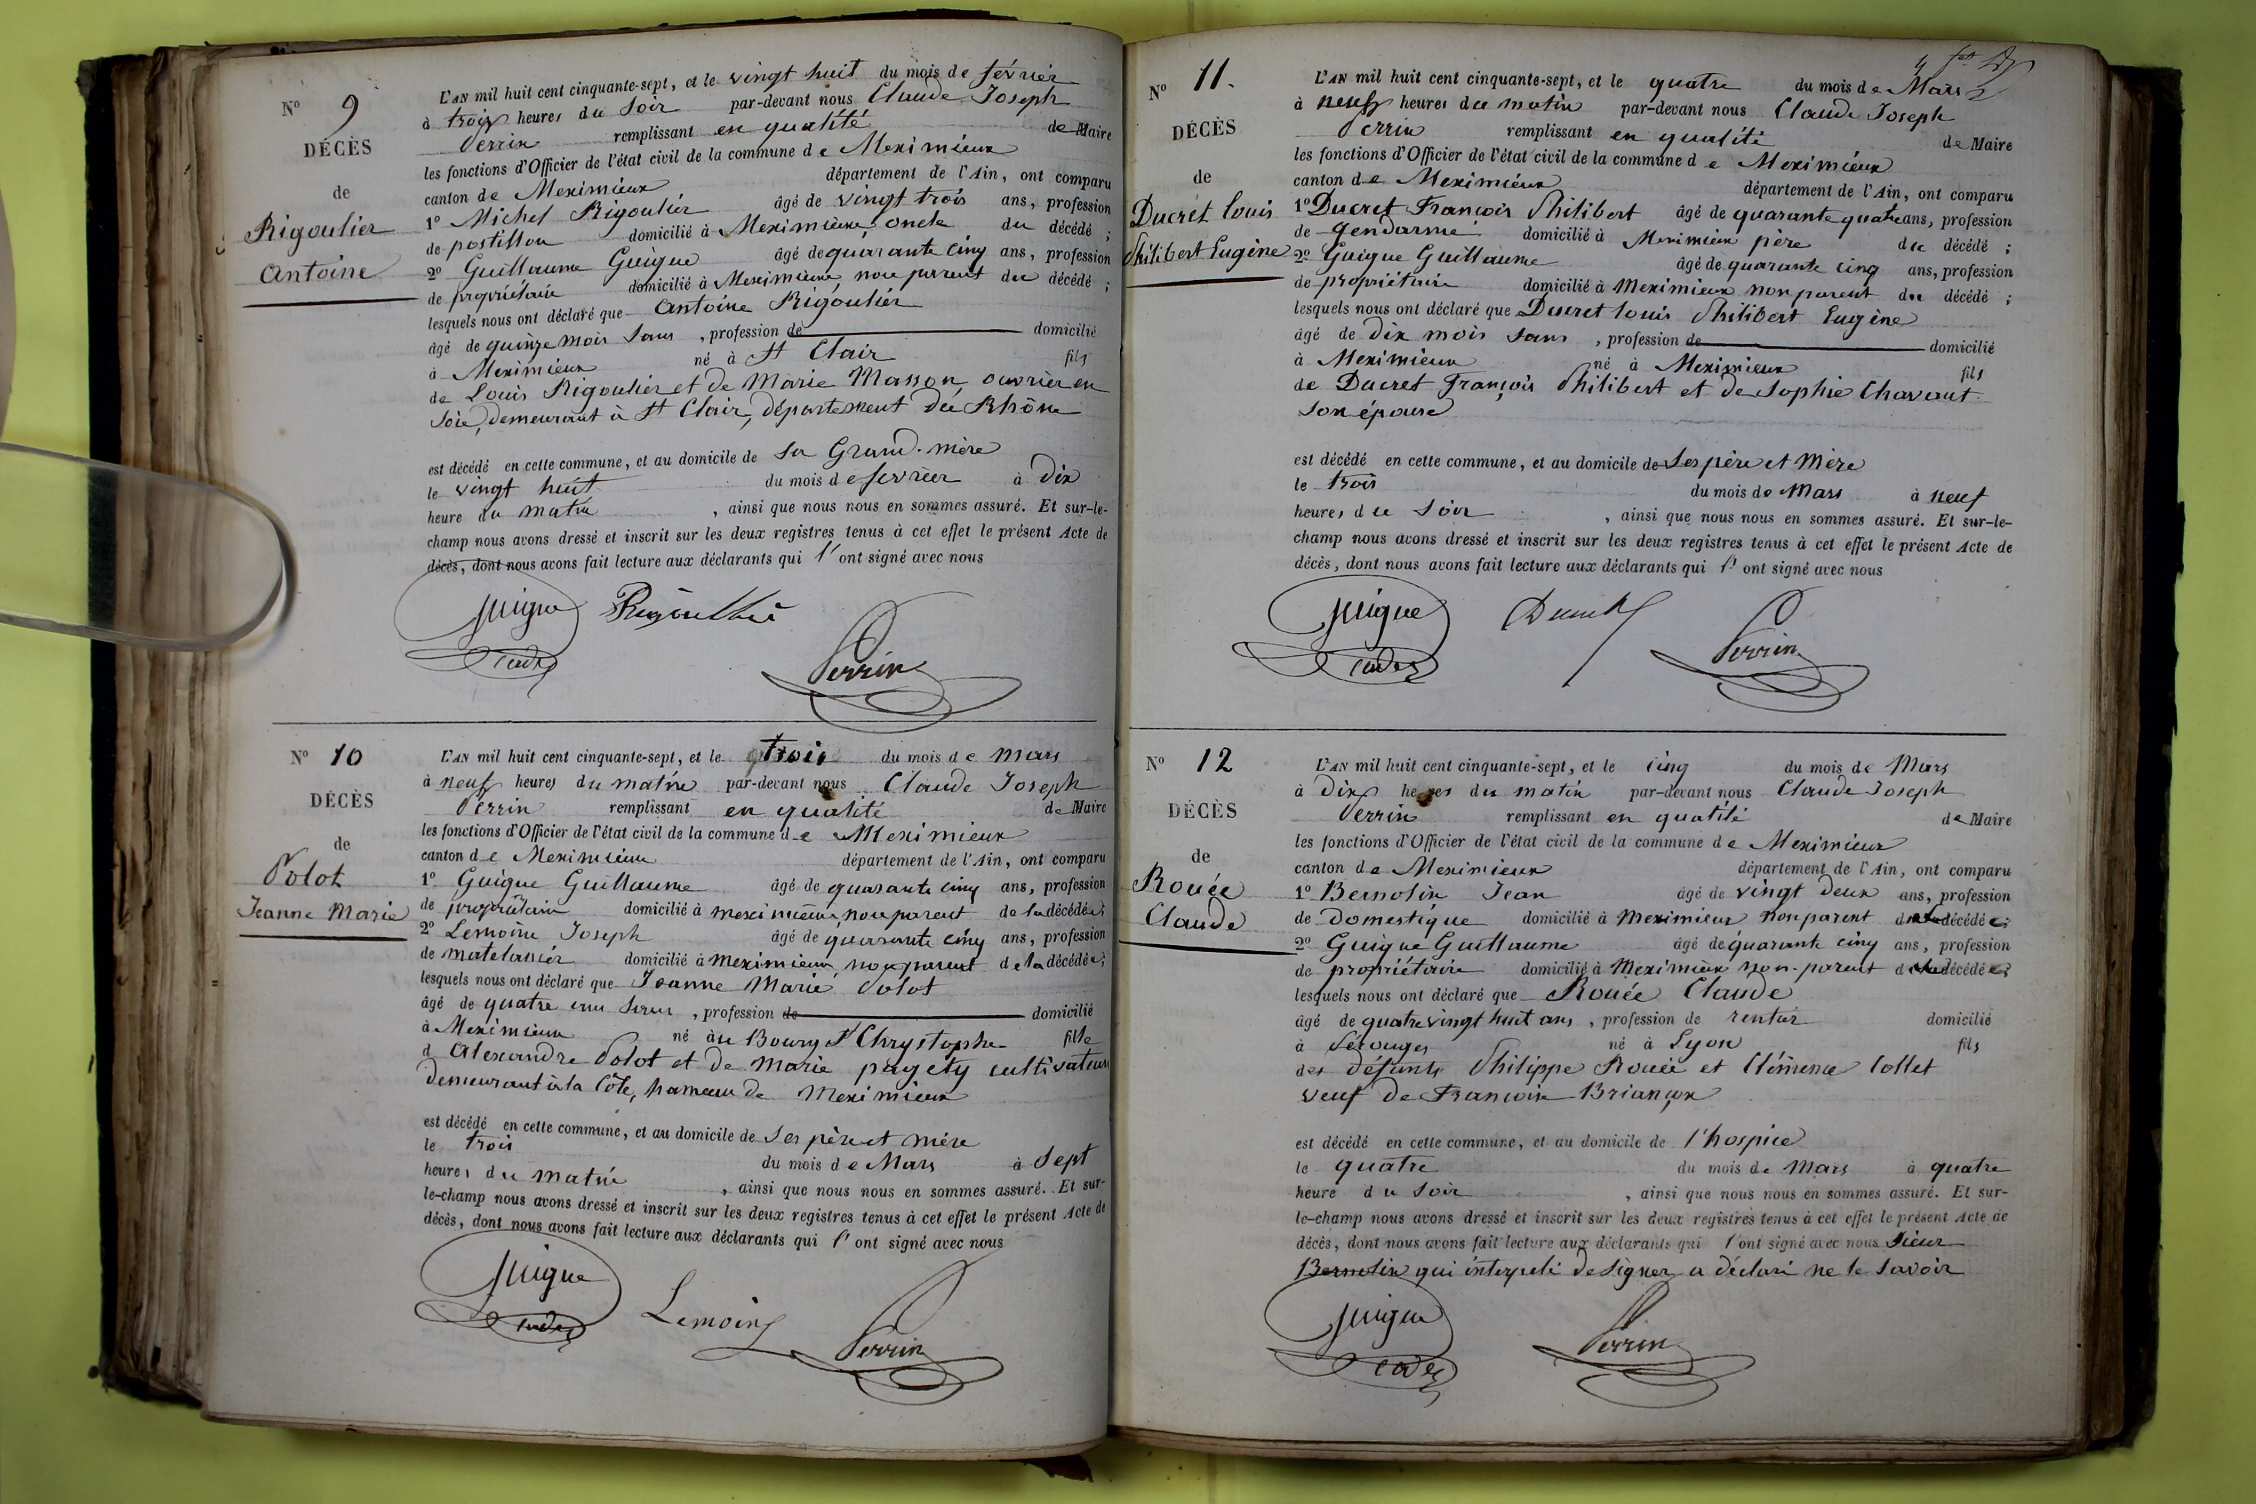 N° 9
DÉCÈS
de
Rigoulier
Antoine
L'AN mil huit cent cinquante-sept, et le vingt huit du mois de février
à trois heures du soir par-devant nous Claude Joseph
Perrin remplissant en qualité de Maire
les fonctions d'Officier de l'état civil de la commune de Meximieux
canton de Meximieux département de l'Ain, ont comparu
1° Michel Rigoulier âgé de vingt trois ans, profession
de postillon domicilié à Meximieux oncle du décédé ;
2° Guillaume Guigue âgé de quarante cinq ans, profession
de propriétaire domicilié à Meximieux, non parent du décédé ;
lesquels nous ont déclaré que Antoine Rigoulier
âgé de quinze mois sans , profession de domicilié
à Meximieux né à St Clair fils
de Louis Rigoulier et de Marie Masson, ouvrier en
soie, demeurant à St Clair, département du Rhône
est décédé en cette commune, et au domicile de sa Grand-mère
le vingt huit du mois de fevrier à dix
heure du matin , ainsi que nous nous en sommes assuré. Et sur-le-
champ nous avons dressé et inscrit sur les deux registres tenus à cet effet le présent Acte de
décès, dont nous avons fait lecture aux déclarants qui l'ont signé avec nous
Guigue Rigoullié
Perrin
N° 10
DÉCÈS
de
Polot
Jeanne Marie
L'AN mil huit cent cinquante-sept, et le trois du mois de Mars
à neuf heures du matin par-devant nous Claude Joseph
Perrin remplissant en qualité de Maire
les fonctions d'Officier de l'état civil de la commune de Meximieux
canton de Meximieux département de l'Ain, ont comparu
1° Guigue Guillaume âgé de quarante cinq ans, profession
de propriétaire domicilié à Meximieux non parent de la décédée ;
2° Lemoine Joseph âgé de quarante cinq ans, profession
de matelassier domicilié à Meximieux, non parent de la décédée ;
lesquels nous ont déclaré que Jeanne Marie Polot
âgé de quatre ans sans , profession de domicilié
à Meximieux né au Bourg St Chrystophe fille
d'Alexandre Polot et de Marie pagety cultivateurs
demeurant à la Côte, hameau de Meximieux
est décédé en cette commune, et au domicile de Ses père et mère
le trois du mois de Mars à Sept
heures du matin , ainsi que nous nous en sommes assuré. Et sur-
le-champ nous avons dressé et inscrit sur les deux registres tenus à cet effet le présent Acte de
décès, dont nous avons fait lecture aux déclarants qui l'ont signé avec nous
Guigue
Lemoine Perrin
N° 11.
DÉCÈS
de
Ducret Louis
Philibert Eugène
L'AN mil huit cent cinquante-sept, et le quatre du mois de Mars
à neuf heures du matin par-devant nous Claude Joseph
Perrin remplissant en qualité de Maire
les fonctions d'Officier de l'état civil de la commune de Meximieux
canton de Meximieux département de l'Ain, ont comparu
1° Ducret François Philibert âgé de quarante quatre ans, profession
de Gendarme domicilié à Meximieux père du décédé ;
2° Guigue Guillaume âgé de quarante cinq ans, profession
de propriétaire domicilié à Meximieux non parent du décédé ;
lesquels nous ont déclaré que Ducret Louis Philibert Eugène
âgé de dix mois sans , profession de domicilié
à Meximieux né à Meximieux fils
de Ducret François Philibert et de Sophie Chavant
son épouse
est décédé en cette commune, et au domicile de Ses père et Mère
le trois du mois de Mars à neuf
heures du soir , ainsi que nous nous en sommes assuré. Et sur-le-
champ nous avons dressé et inscrit sur les deux registres tenus à cet effet le présent Acte de
décès, dont nous avons fait lecture aux déclarants qui l'ont signé avec nous
Guigue Ducret Perrin
N° 12
DÉCÈS
de
Rouée
Claude
L'AN mil huit cent cinquante-sept, et le cinq du mois de Mars
à dix heures du matin par-devant nous Claude Joseph
Perrin remplissant en qualité de Maire
les fonctions d'Officier de l'état civil de la commune de Meximieux
canton de Meximieux département de l'Ain, ont comparu
1° Bernolin Jean âgé de vingt deux ans, profession
de Domestique domicilié à Meximieux non parent du décédé ;
2° Guigue Guillaume âgé de quarante cinq ans, profession
de propriétaire domicilié à Meximieux non-parent du décédé ;
lesquels nous ont déclaré que Rouée Claude
âgé de quatre vingt huit ans , profession de rentier domicilié
à Perouges né à Lyon fils
des défunts Philippe Rouée et Clémence Collet
veuf de François Briançon
est décédé en cette commune, et au domicile de l'hospice
le quatre du mois de Mars à quatre
heure du soir , ainsi que nous nous en sommes assuré. Et sur-
le-champ nous avons dressé et inscrit sur les deux registres tenus à cet effet le présent Acte de
décès, dont nous avons fait lecture aux déclarants qui l'ont signé avec nous Sieur
Bernolin qui interpelé de signer a déclaré ne le savoir
Guigue Perrin